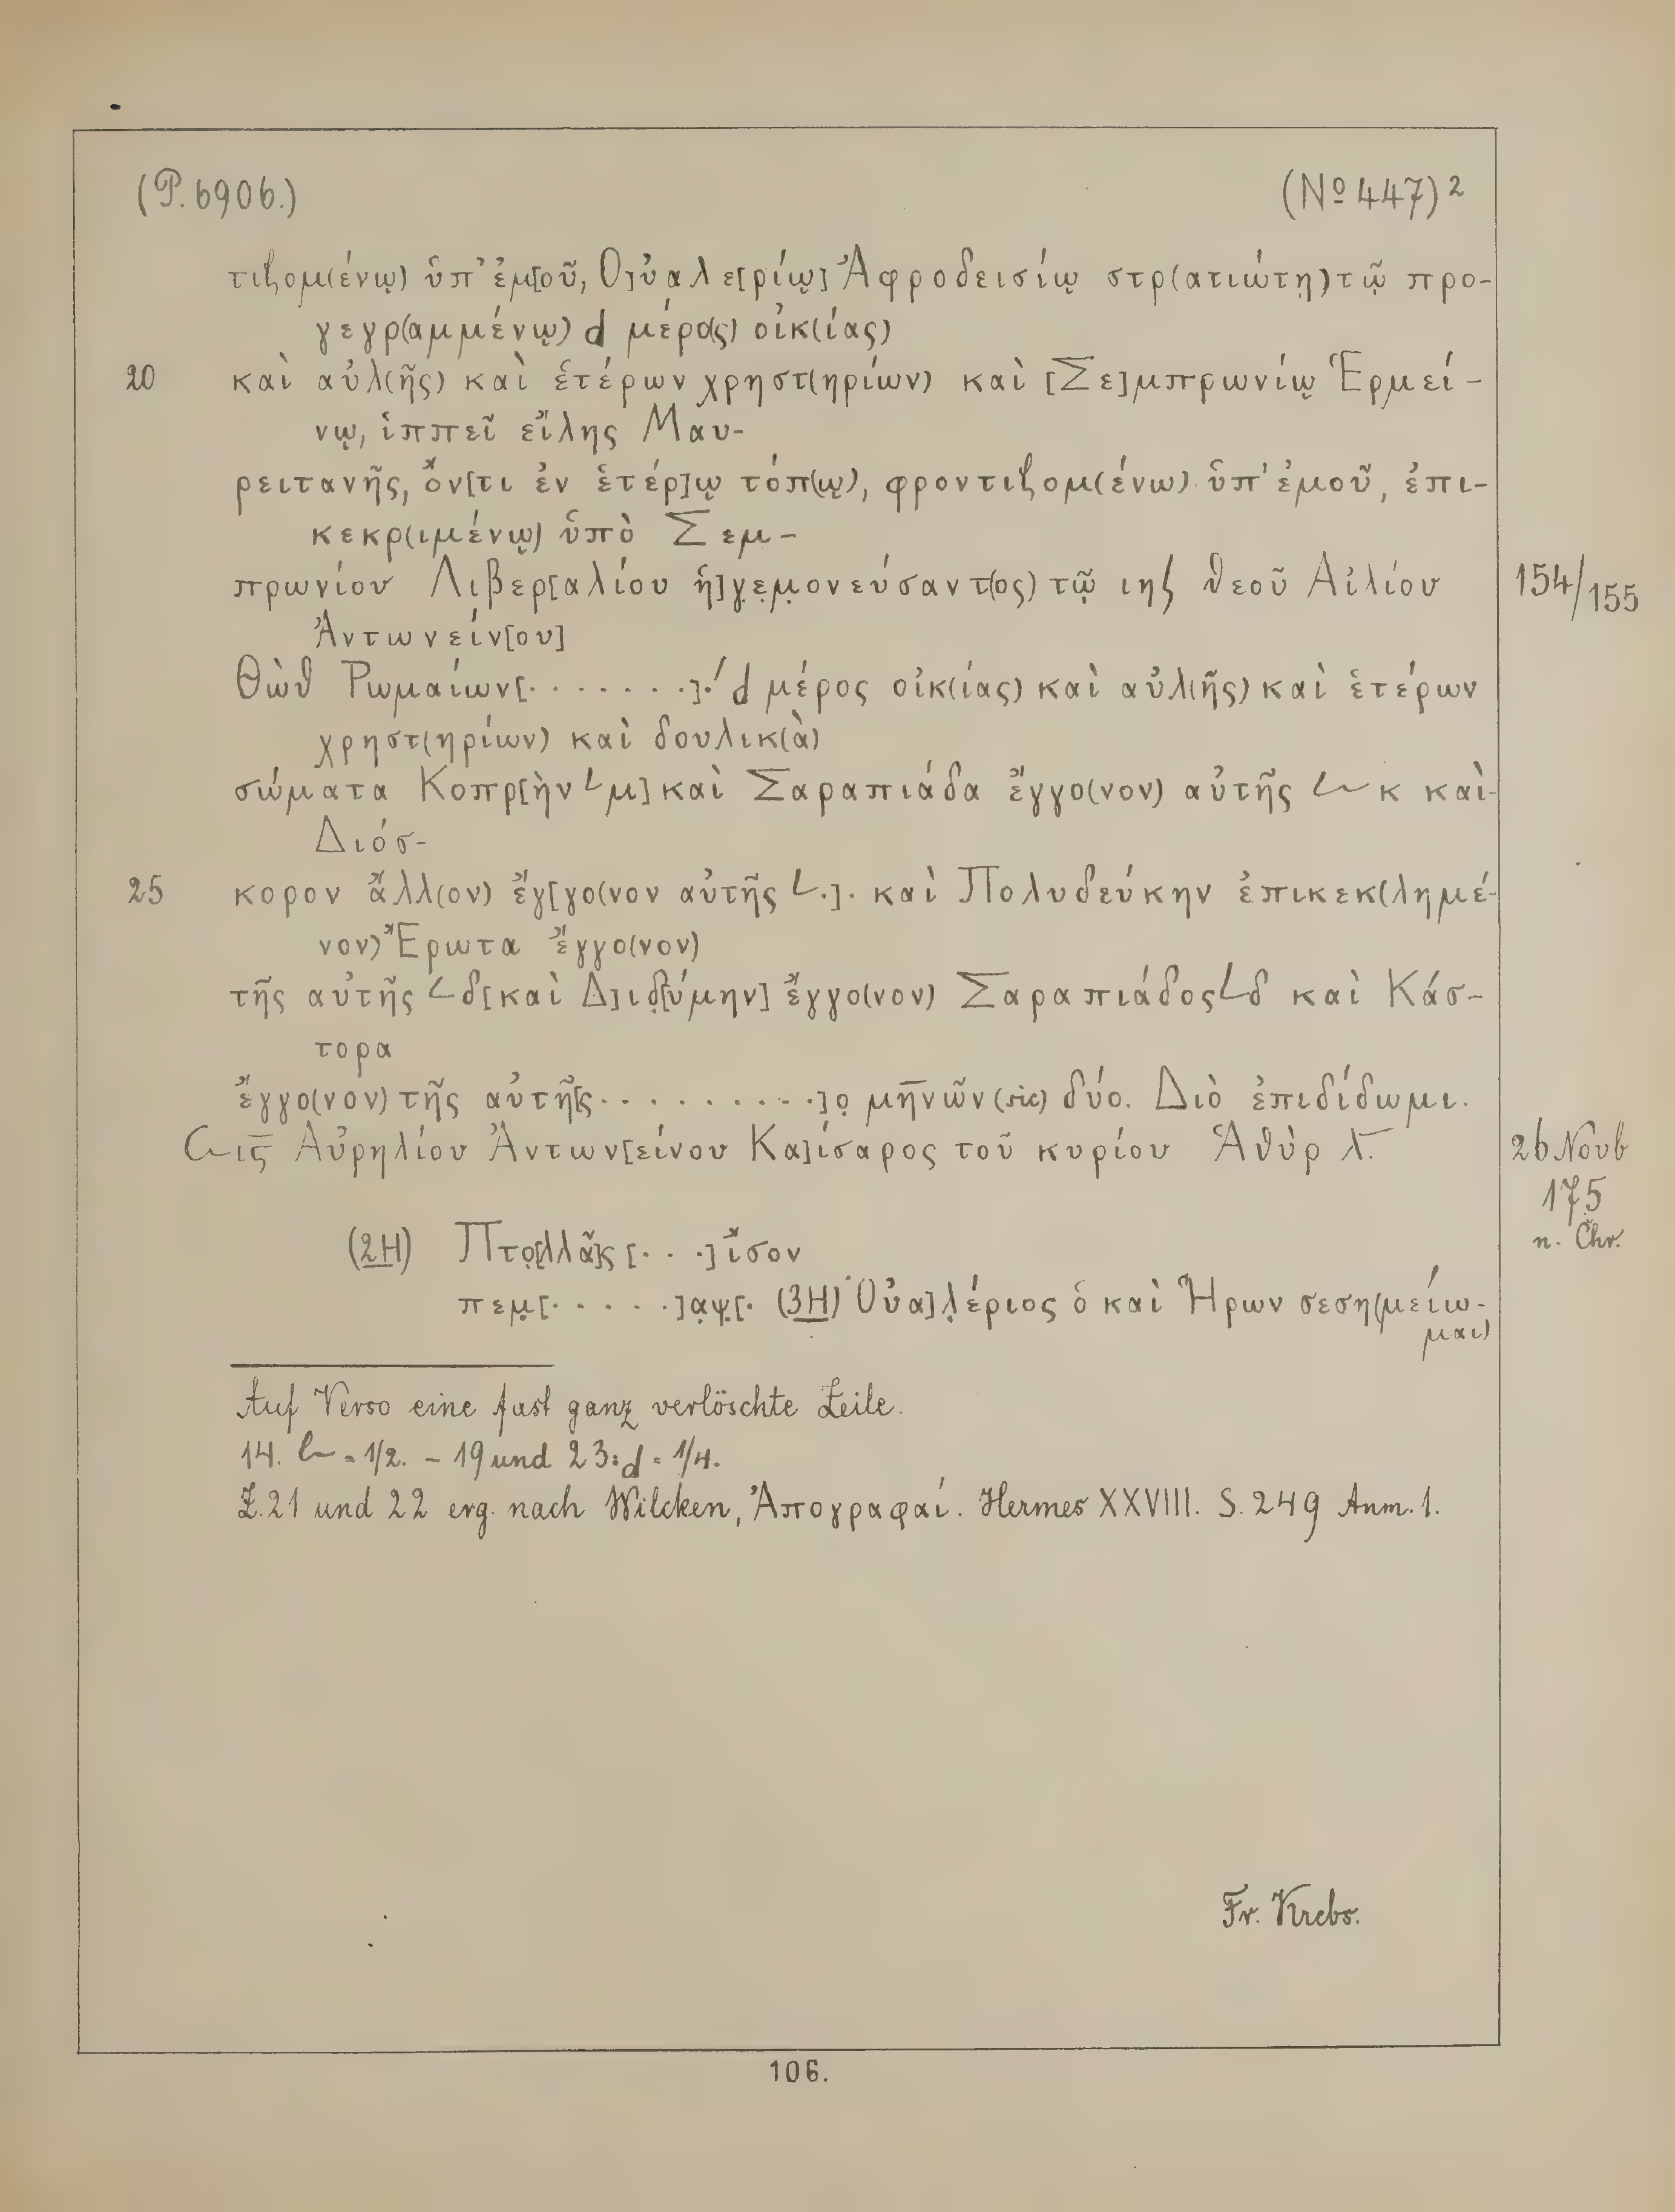 (P. 6906.) (Nº 447)²
τιζομ(ένῳ) ὑπ' ἐμ[οῦ, Ο]ὐαλε[ρίῳ] Ἀφροδεισίῳ στρ(ατιώτῃ) τῷ προ-
γεγρ(αμμένῳ) d μέρο(ς) οἰκ(ίας)
20 καὶ αὐλ(ῆς) καὶ ἑτέρων χρηστ(ηρίων) καὶ [Σε]μπρωνίῳ Ἑρμεί-
νῳ, ἱππεῖ εἴλης Μαυ-
ρειτανῆς, ὄν[τι ἐν ἑτέρ]ῳ τόπ(ῳ), φροντιζομ(ένω) ὑπ' ἐμοῦ, ἐπι-
κεκρ(ιμένῳ) ὑπὸ Σεμ-
πρωνίου Λιβερ[αλίου ἡ]γ̣ε̣μ̣ονεύσαντ(ος) τῷ ιηϛ θεοῦ Αἰλίου 154/155
Ἀντωνείν[ου]
Θὼθ Ῥωμαίων[. . . . . . . .].́ d μέρος οἰκ(ίας) καὶ αὐλ(ῆς) καὶ ἑτέρων
χρηστ(ηρίων) καὶ δουλικ(ὰ)
σώματα Κοπρ[ὴν L μ] καὶ Σαραπιάδα ἔγγο(νον) αὐτῆς L κ καὶ
Διόσ-
25 κορον ἄλλ(ον) ἔγ[γο(νον αὐτῆς L .]. καὶ Πολυδεύκην ἐπικεκ(λημέ-
νον) Ἔρωτα ἔγγο(νον)
τῆς αὐτῆς L δ [καὶ Δ]ιδ̣[ύμην] ἔγγο(νον) Σαραπιάδος L δ καὶ Κάσ-
τορα
ἔγγο(νον) τῆς αὐτῆ[ς . . . . . . . . . .]ο̣ μη̅νῶν (sic) δύο. Διὸ ἐπιδίδωμι.
L ις̅ Αὐρηλίου Ἀντων[είνου Κα]ίσαρος τοῦ κυρίου Ἁθὺρ λ̅. 26 Novb
175
n. Chr.
(2H) Πτο̣[λλᾶ]ς [. . .] ἴσον
πεμ̣[. . . . . .]α̣ψ̣[. (3H) Οὐα]λ̣έριος ὁ καὶ Ἥρων σεση(μείω-
μαι)
Auf Verso eine fast ganz verlöschte Zeile.
14. L = 1/2. – 19 und 23: d = 1/4.
Z. 21 und 22 erg. nach Wilcken, Ἀπογραφαί. Hermes XXVIII. S. 249 Anm. 1.
Fr. Krebs.
106.